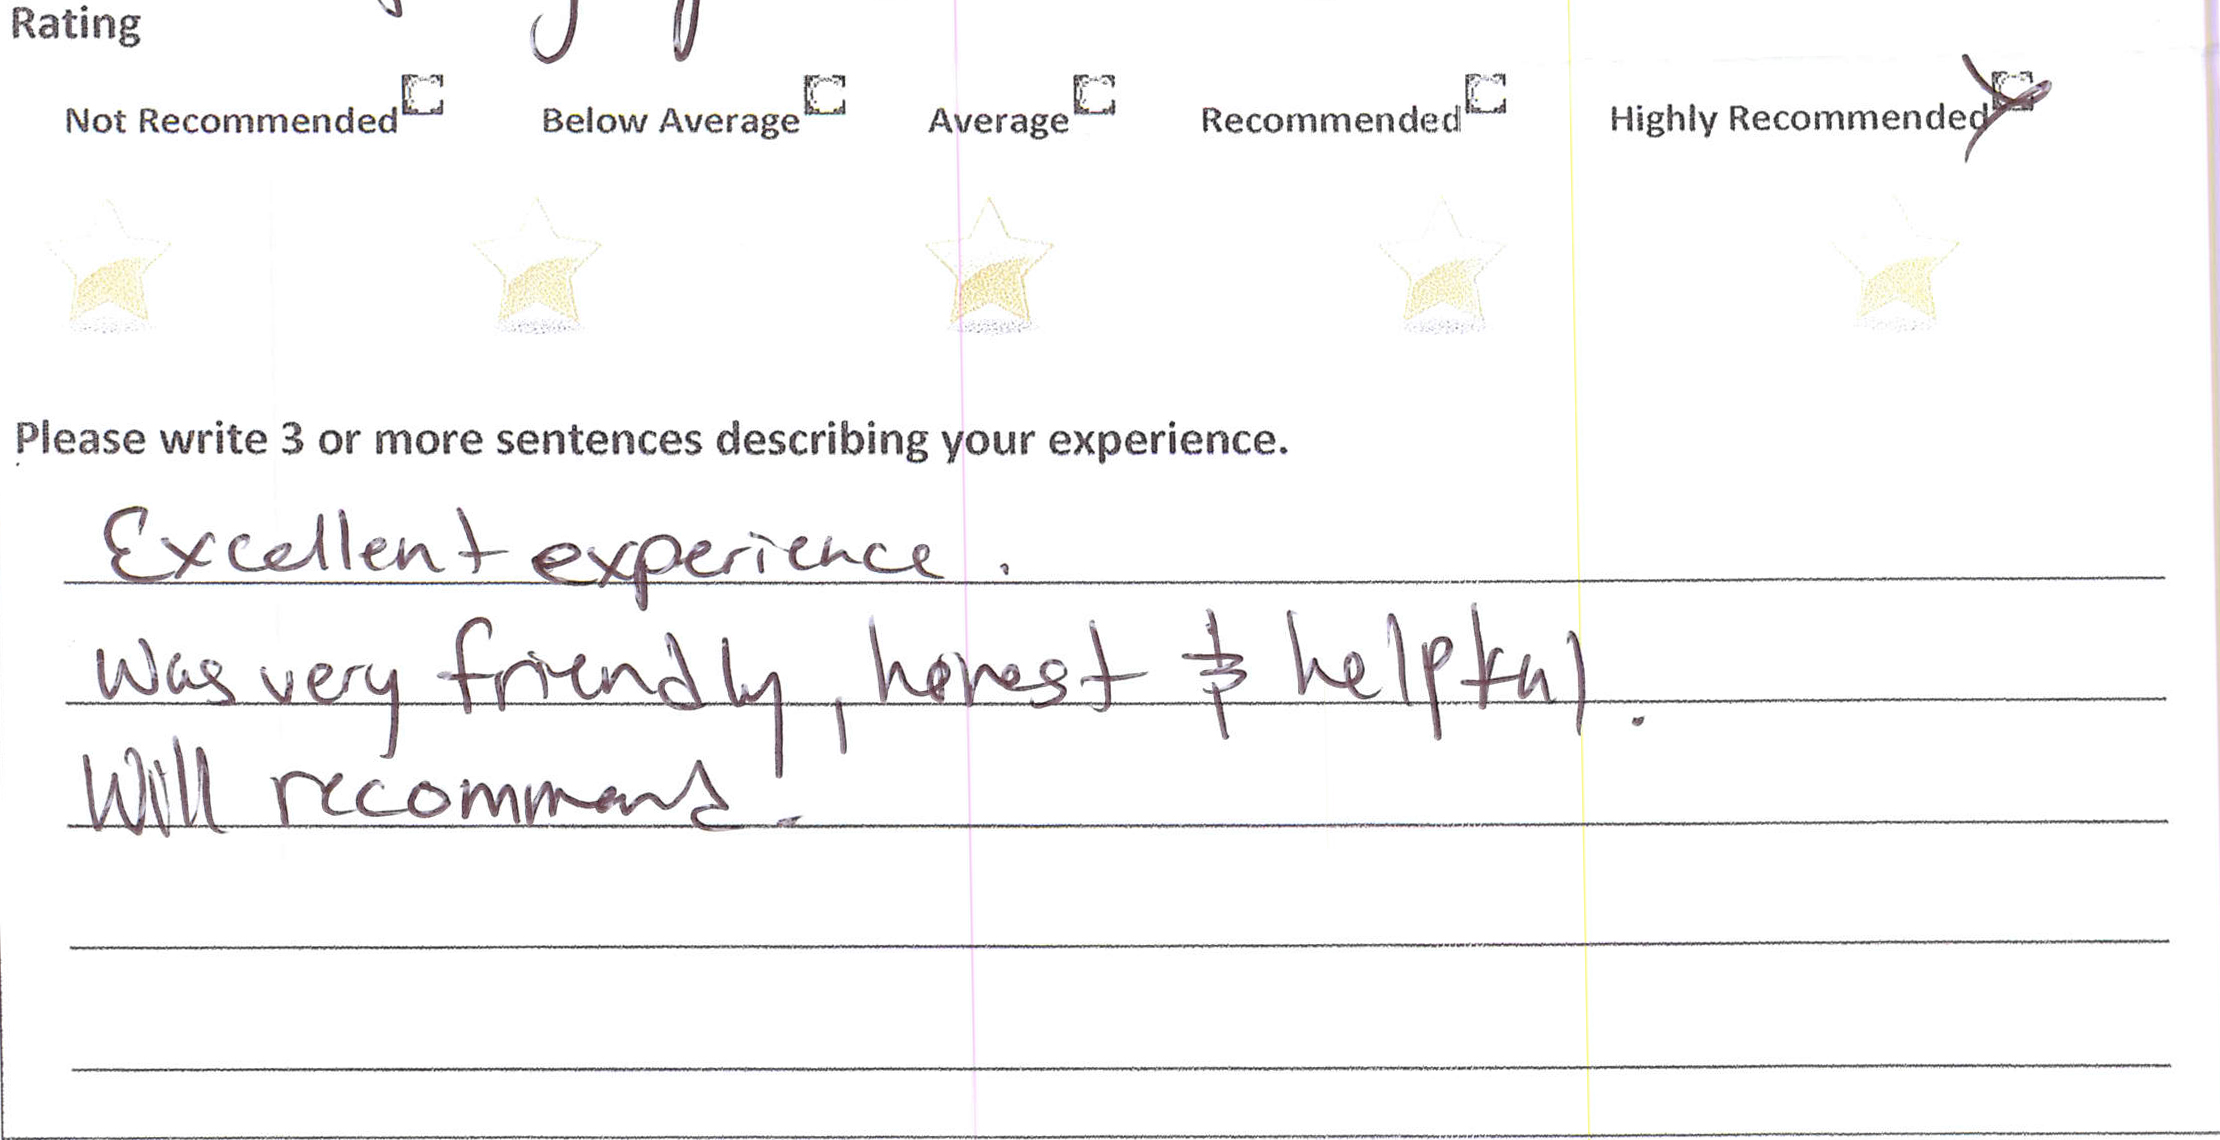 Rating
Not Recommended Below Average Average Recommended Highly Recommended
Please write 3 or more sentences describing your experience.
Excellent experience.
Was very friendly, honest & helpful.
Will recommend.